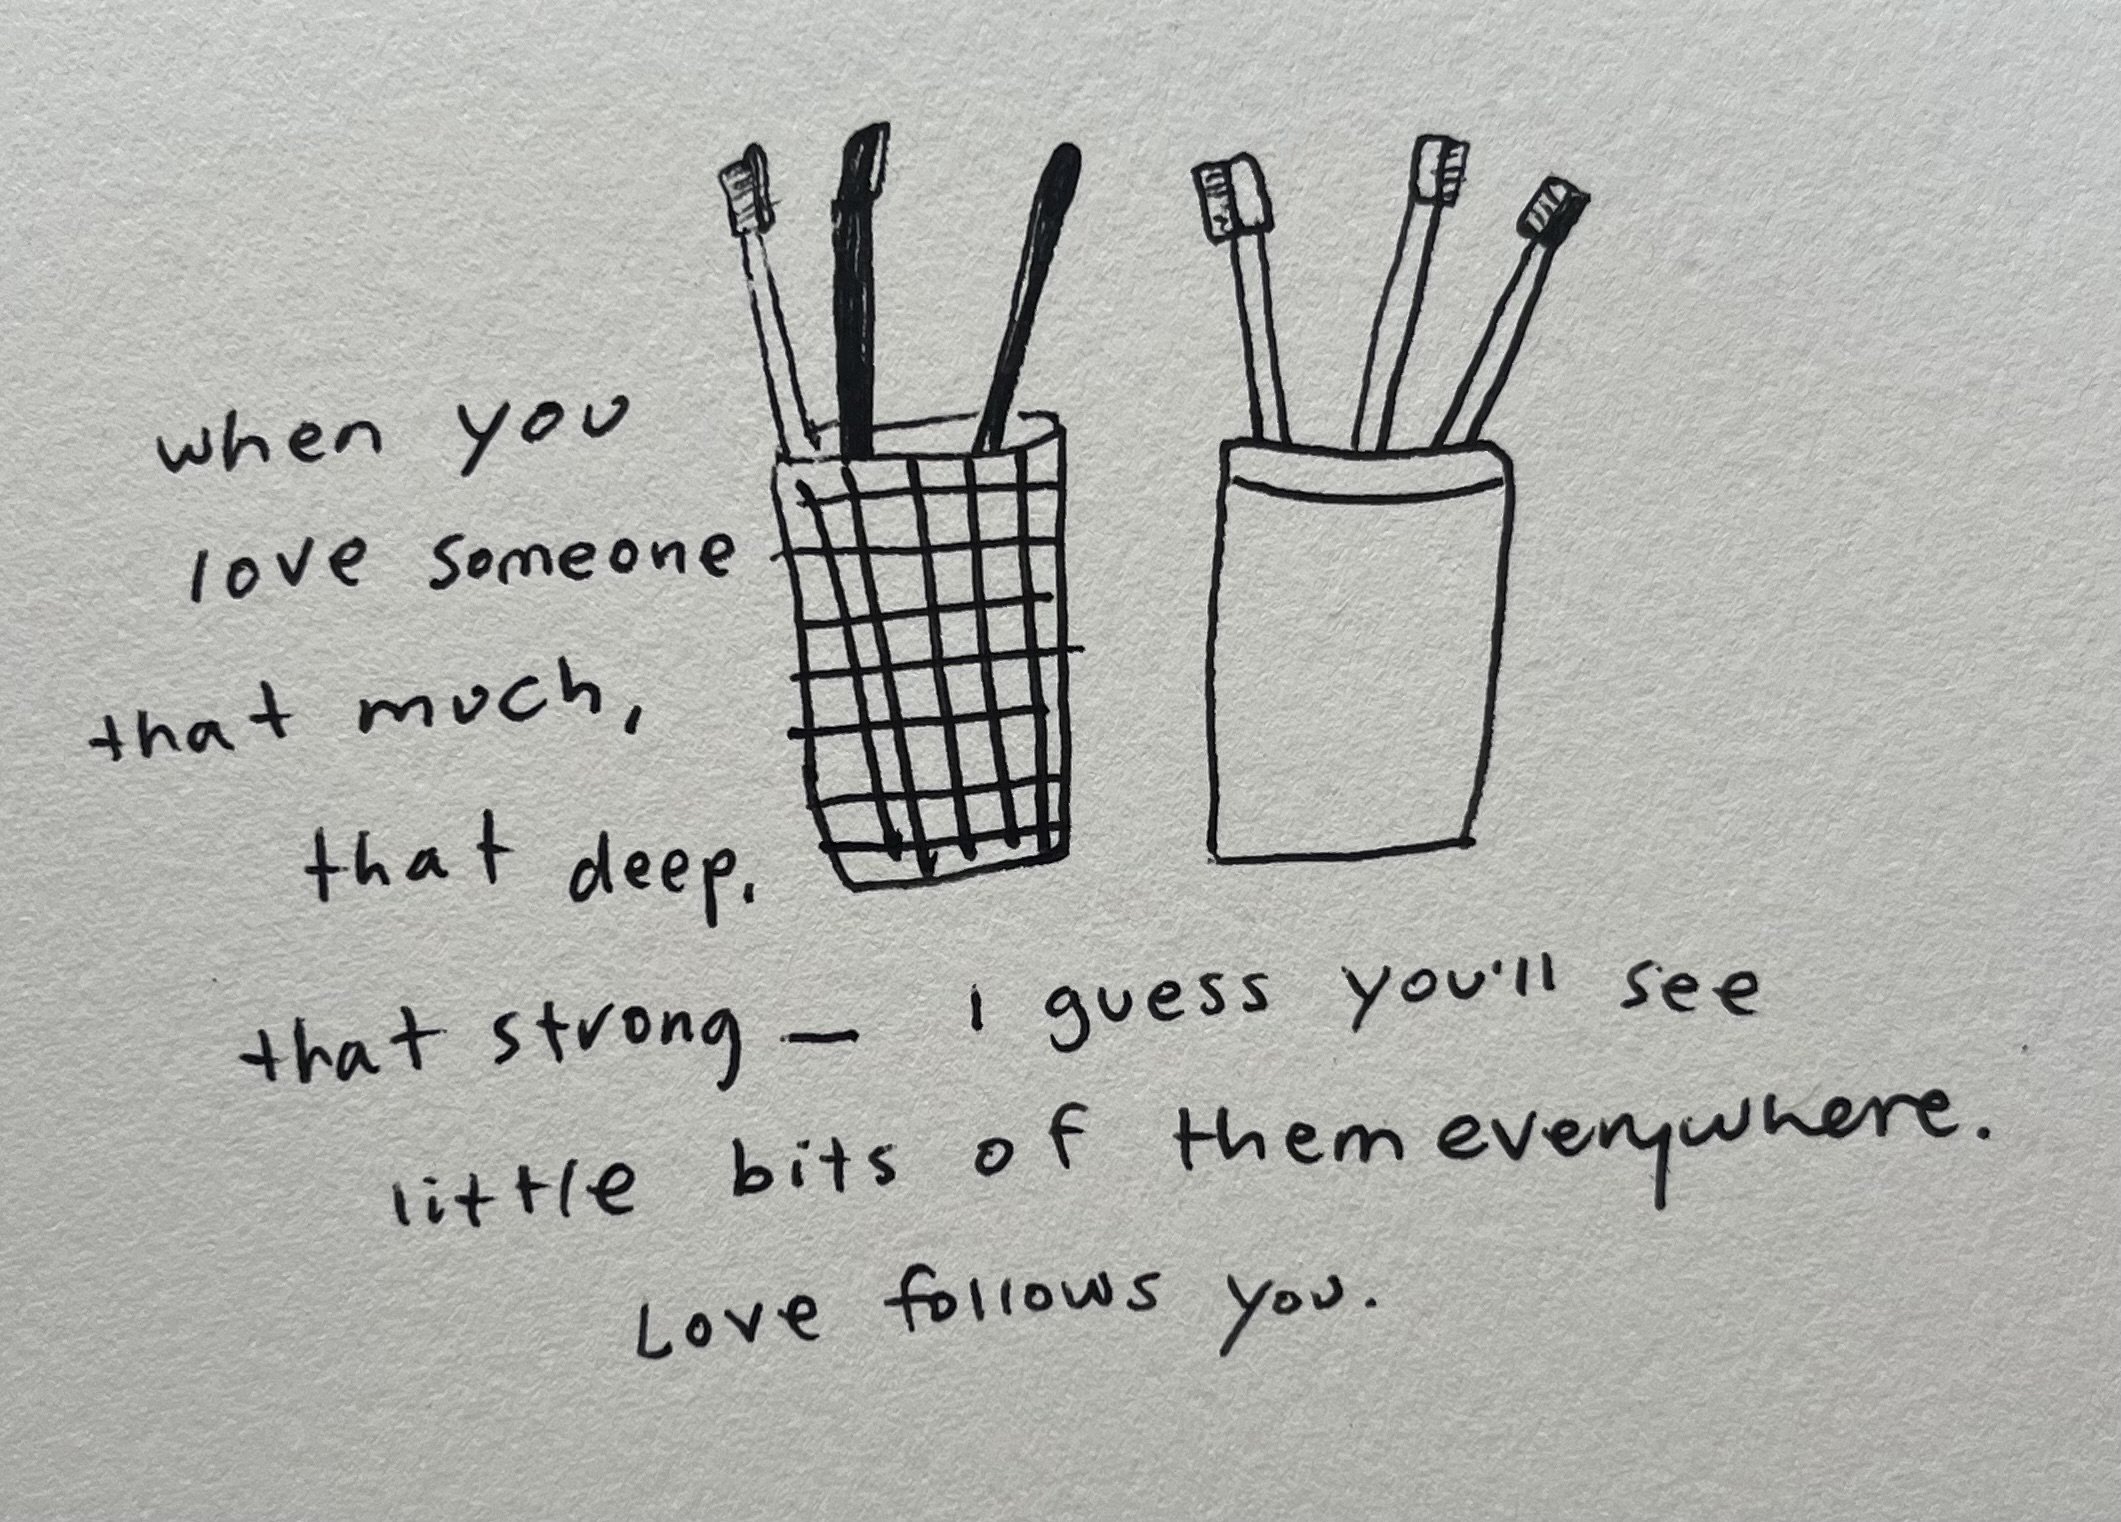 when you
love someone
that much,
that deep,
that strong — i guess you'll see
little bits of them everywhere.
Love follows you.